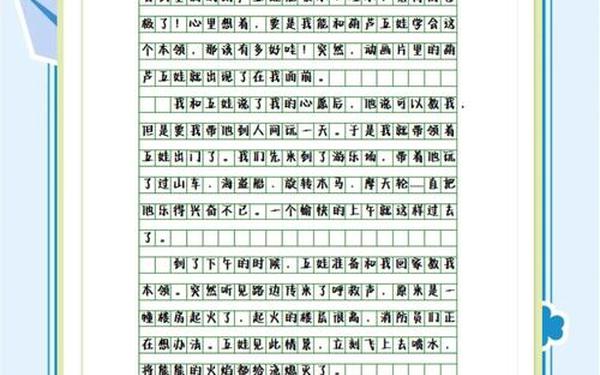 极了！心里想着，要是我能和葫芦五娃学会这
个本领，那该有多好哇！突然，动画片里的葫
芦五娃就出现了在我面前。
我和五娃说了我的心愿后，他说可以教我，
但是要我带他到人间玩一天。于是我就带领着
五娃出门了。我们先来到了游乐场，带着他玩
了过山车、海盗船、旋转木马、摩天轮……直把
他乐得兴奋不已。一个愉快的上午就这样过去
了。
到了下午的时候，五娃准备和我回家教我
本领。突然听见路边传来了呼救声，原来是一
幢楼房起火了，起火的楼层很高，消防员们正
在想办法。五娃见此情景，立刻飞上去喷水，
将熊熊的火焰都给浇熄灭了。